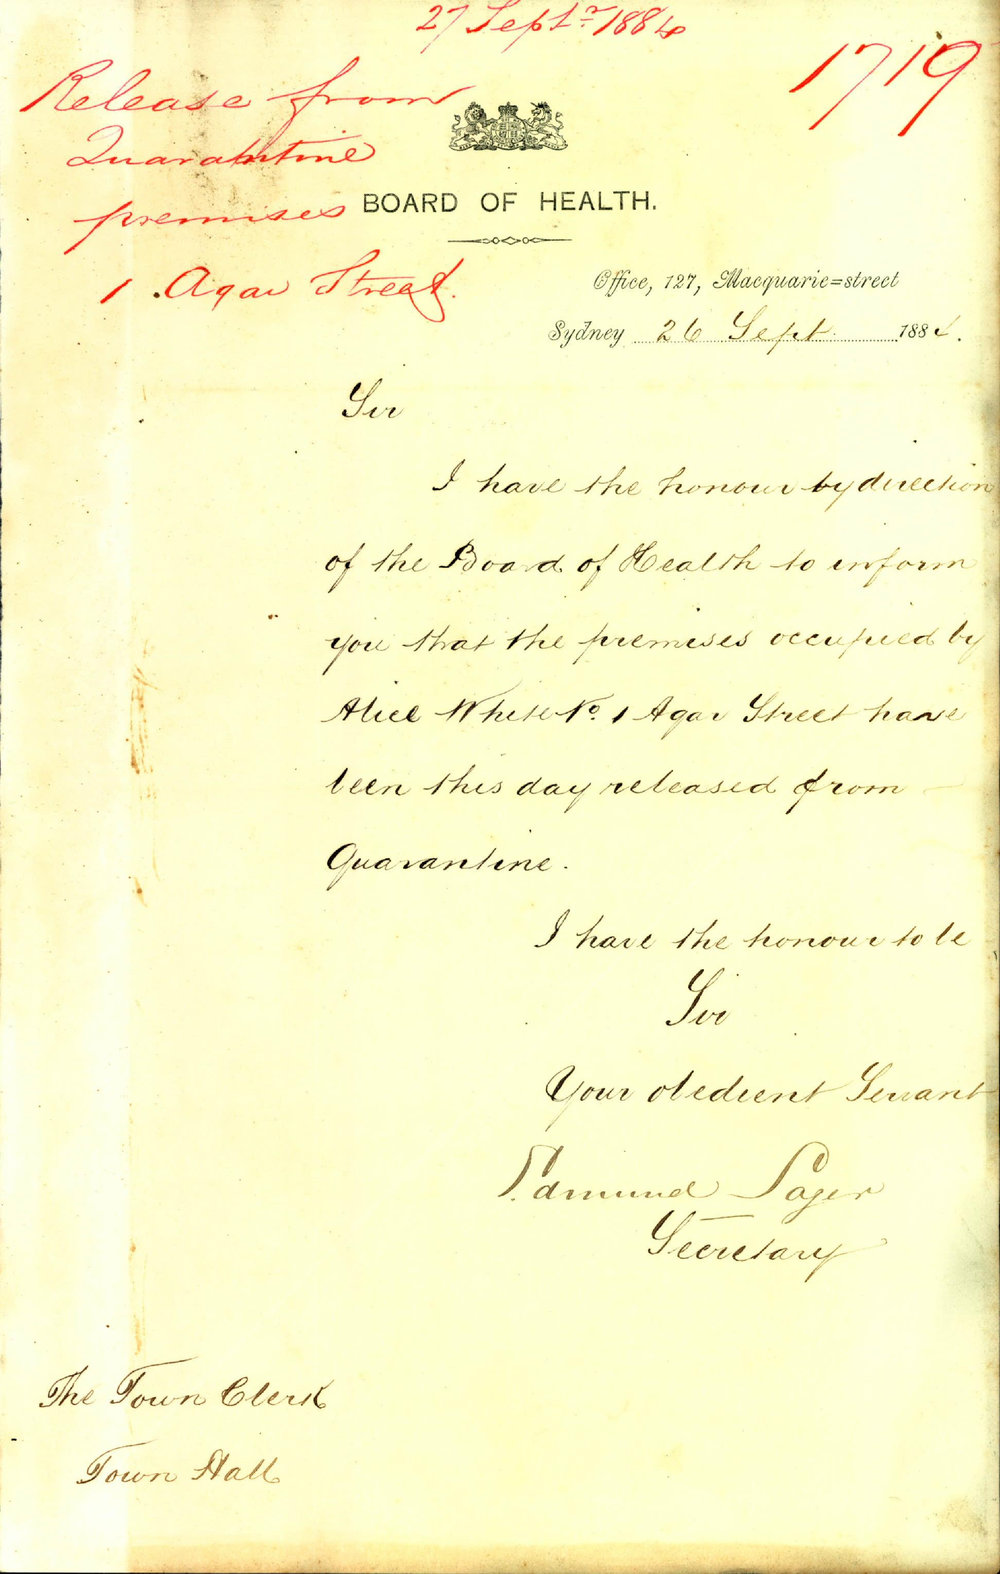 27 Septr. 1884
1719
Release from
Quarantine
premises
1. Agar Street.
BOARD OF HEALTH.
Office, 127, Macquarie=street
Sydney 26 Sept. 1884.
Sir
I have the honour by direction
of the Board of Health to inform
you that the premises occupied by
Alice White No. 1 Agar Street have
been this day released from
Quarantine.
I have the honour to be
Sir
Your obedient Servant
Edmund Sager
Secretary
The Town Clerk
Town Hall